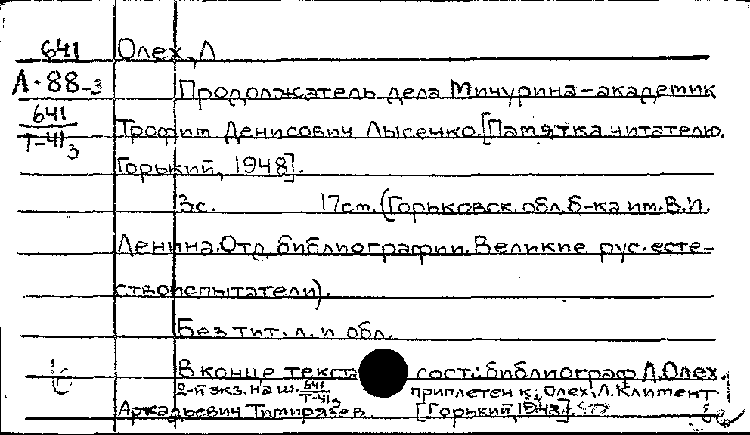 641
Олех, Л
Л-88-3
Продолжатель дела Мичурина-академик
641
Т-41 3
Трофим Денисович Лысенко. [Памятка читателю.
Горький, 1948].
3с. 17см. (Горьковск. обл. б-ка им. В.И.
Ленина. Отд. библиографии. Великие рус. есте-
ствоиспытатели).
Без тит. л. и обл.
В конце текста сост.: библиограф Л. Олех.
2-й экз. на ш. 641 Т-41 3 приплетен к: Олех, Л. Климент
Аркадьевич Тимирязев. [Горький, 1948].